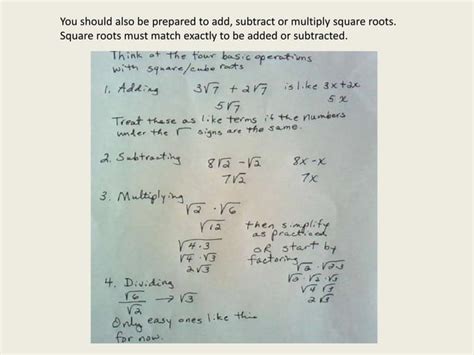 You should also be prepared to add, subtract or multiply square roots.
Square roots must match exactly to be added or subtracted.
Think of the four basic operations
with square/cube roots
1. Adding 3√7 + 2√7 is like 3x+2x
5√7 5x
Treat these as like terms if the numbers
under the √ signs are the same.
2. Subtracting 8√2 - √2 8x - x
7√2 7x
3. Multiplying
√2 · √6
√12 then simplify
as practiced
√4·3 OR start by
√4 · √3 factoring
2√3 √2 · √2·3
√2 · √2 · √3
√4 √3
2√3
4. Dividing
√6/√2 → √3
Only easy ones like this
for now.